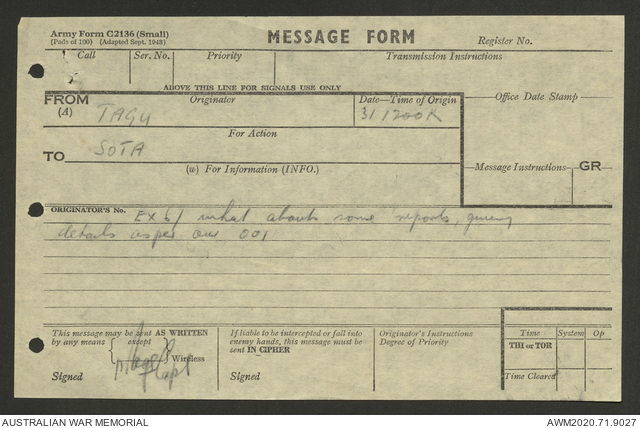 Army Form C2136 (Small)
(Pads of 100) (Adapted Sept. 1943)
MESSAGE FORM
Register No.
Call
Ser. No.
Priority
Transmission Instructions
ABOVE THIS LINE FOR SIGNALS USE ONLY
FROM
(A)
Originator
TAGU
Date—Time of Origin
31 1200K
Office Date Stamp
For Action
TO
SOTA
(w) For Information (INFO.)
Message Instructions
GR
ORIGINATOR'S No.
what about some reports, giving
details as per our 001
This message may be sent AS WRITTEN
by any means
except
Wireless
Signed
Capt
If liable to be intercepted or fall into
enemy hands, this message must be
sent IN CIPHER
Signed
Originator's Instructions
Degree of Priority
Time
System
Op
THI or TOR
Time Cleared
AUSTRALIAN WAR MEMORIAL
AWM2020.71.9027